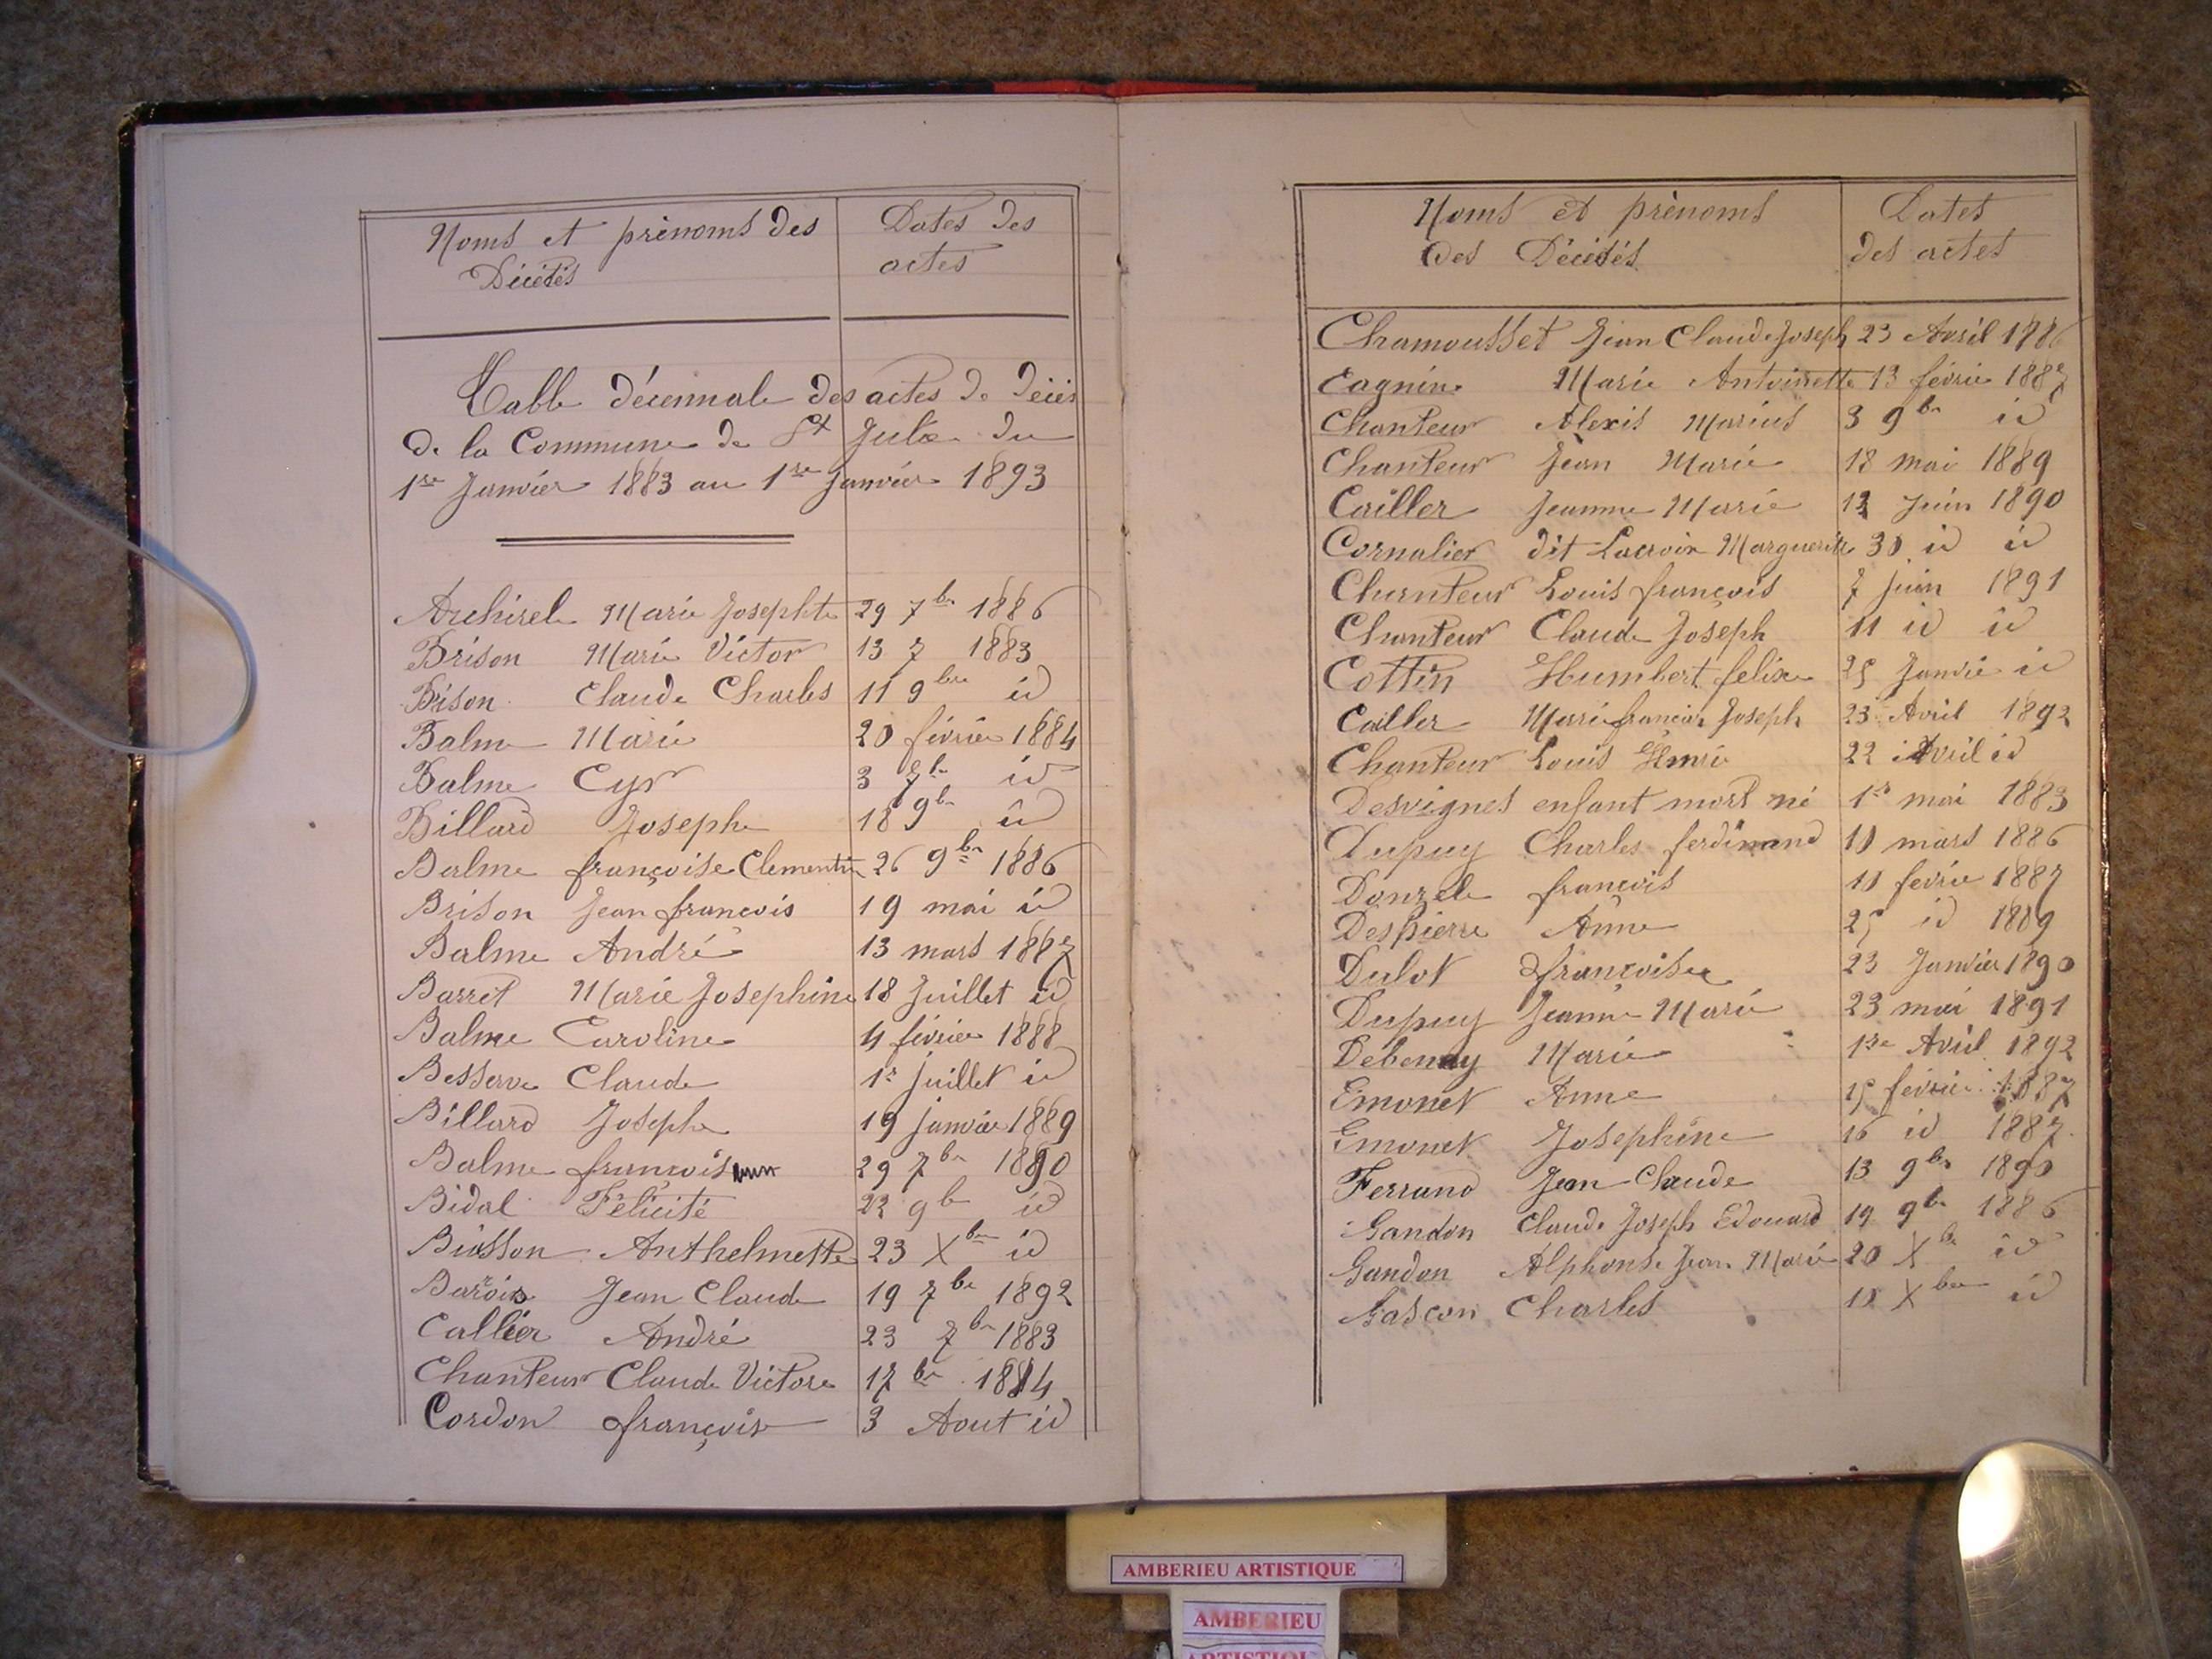 Noms et prènoms des
Décédés
Dates des
actes
Table décennale des actes de décès
de la Commune de St Julie du
1re Janvier 1883 au 1re Janvier 1893
Archirel Marie Josephte 29 7bre 1886
Brison Marie Victor 13 7 1883
Bison Claude Charles 11 9bre id
Balme Marie 20 février 1884
Balme Cyr 3 7bre id
Billard Joseph 18 9bre id
Balme françoise Clementin 26 9bre 1886
Brison Jean françois 19 mai id
Balme André 13 mars 1887
Barret Marie Josephine 18 Juillet id
Balme Caroline 4 février 1888
Besserve Claude 1r Juillet id
Billard Joseph 19 janvier 1889
Balme françois 29 7bre 1890
Bidal Félicité 22 9b id
Buisson Anthelmette 23 Xbre id
Barois Jean Claude 19 7bre 1892
Callier André 23 7bre 1883
Chanteur Claude Victore 17 bre 1884
Cordon françois 3 Aout id
Noms et prènoms
des Décédés
Dates
des actes
Chamousset Jean Claude Joseph 23 Avril 1886
Cagnin Marie Antoinette 13 février 1887
Chanteur Alexis Marius 3 9bre id
Chanteur Jean Marie 18 mai 1889
Cailler Jeanne Marie Juin 1890
Cornalier dit Lacroix Marguerite 30 id id
Chanteur Louis françois 7 juin 1891
Chanteur Claude Joseph 11 id id
Cottin Humbert felix 25 Janvie id
Cailler Marie françois Joseph 23 Avril 1892
Chanteur Louis Henri 22 Avril id
Desvignes enfant mort né 1re mai 1883
Dupuy Charles ferdinand 10 mars 1886
Donzel françois 10 fevrie 1887
Despierre Anne 25 id 1889
Dulot françoise 23 Janvier 1890
Dupuy Jeanne Marie 23 mai 1891
Debenay Marie 1re Avril 1892
Emonet Anne 15 février 1887
Emonet Josephine 16 id 1887
Ferrand Jean Claude 13 9bre 1890
Gandon Claude Joseph Edouard 19 9bre 1886
Gandon Alphonse Jean Marie 20 Xbre id
Gascon Charles 10 Xbre id
AMBERIEU ARTISTIQUE
AMBERIEU
ARTISTIQUE